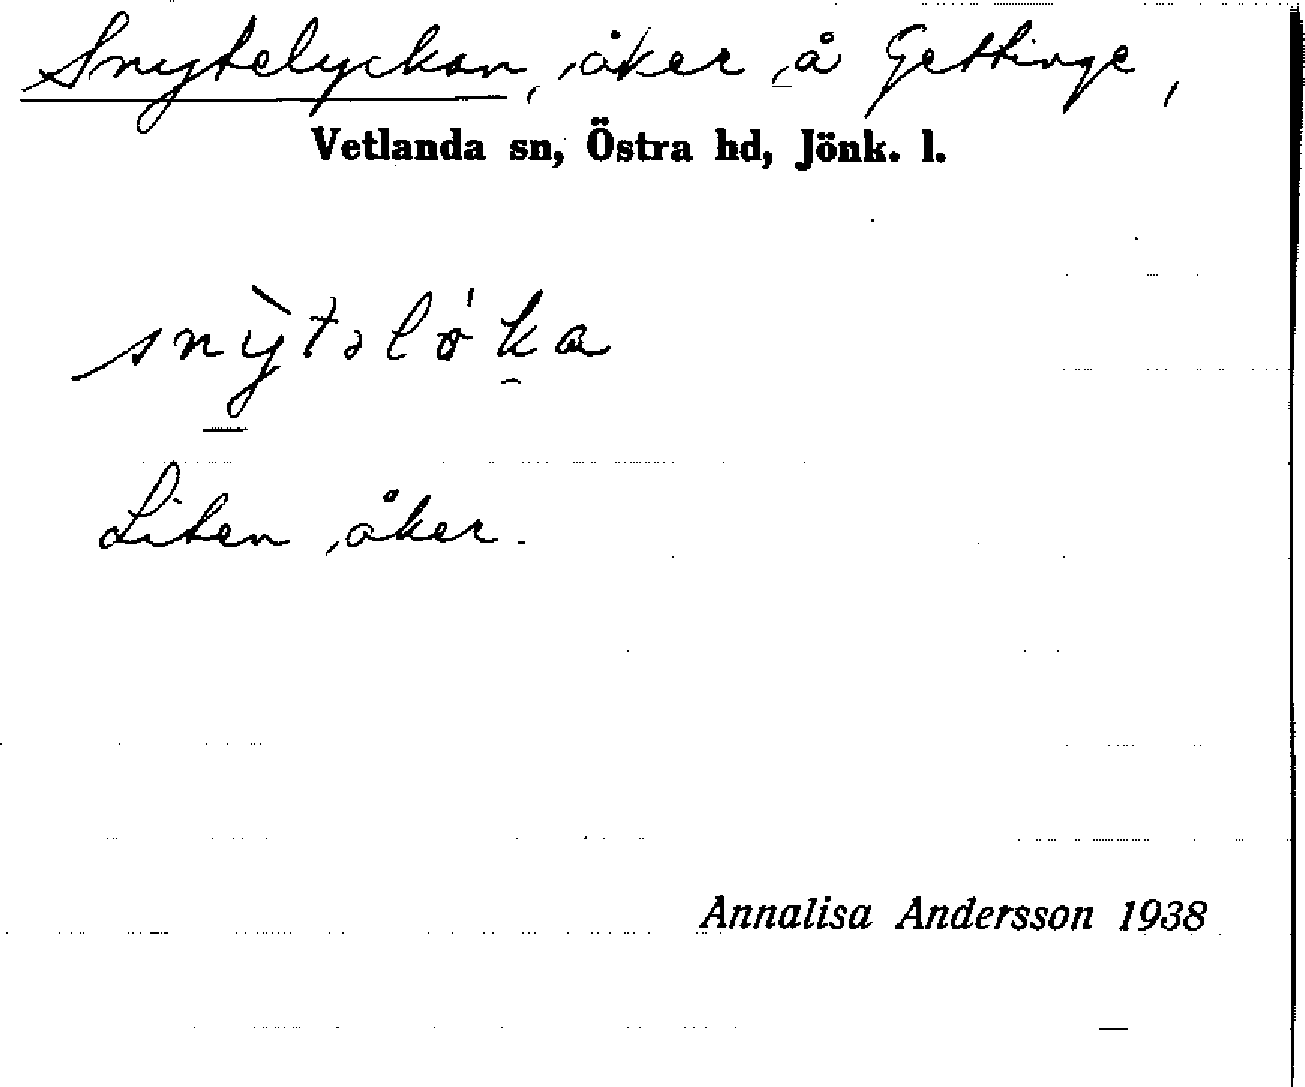 Snytelyckan, åker å Gettinge,
Vetlanda sn, Östra hd, Jönk. l.
snỳtəlo̍ka
Liten åker.
Annalisa Andersson 1938